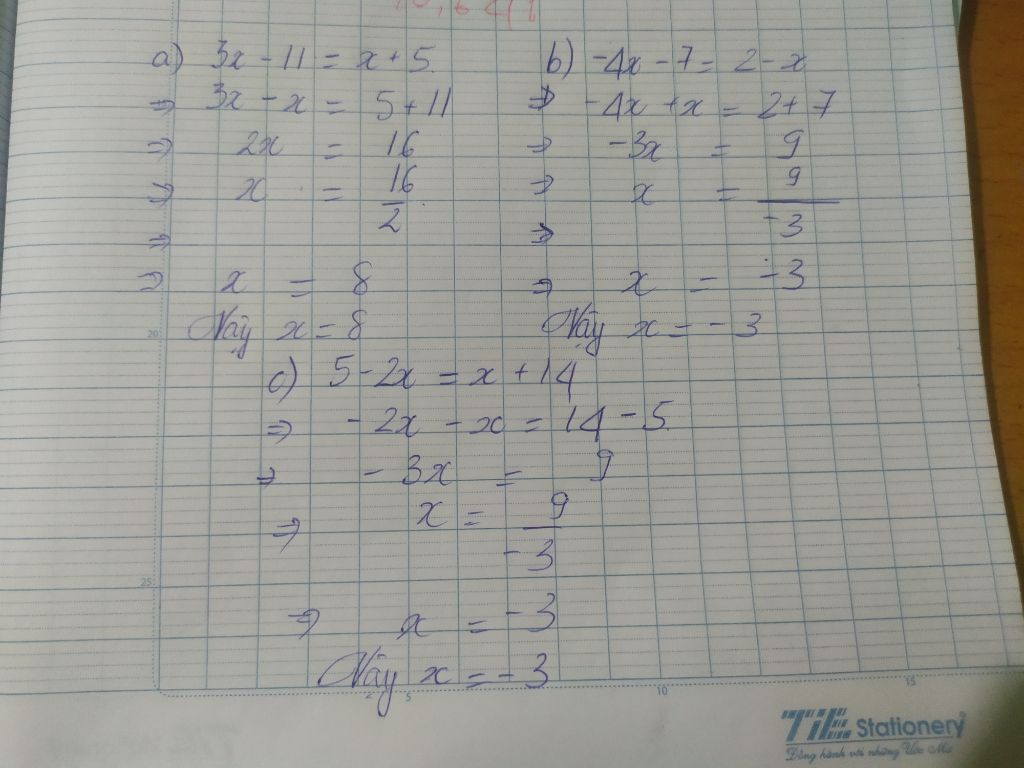 a) 3x - 11 = x + 5
⇒ 3x - x = 5 + 11
⇒ 2x = 16
⇒ x = 16/2
⇒
⇒ x = 8
Vậy x = 8
b) -4x - 7 = 2 - x
⇒ -4x + x = 2 + 7
⇒ -3x = 9
⇒ x = 9/-3
⇒
⇒ x = -3
Vậy x = -3
c) 5 - 2x = x + 14
⇒ -2x - x = 14 - 5
⇒ -3x = 9
⇒ x = 9/-3
⇒ x = -3
Vậy x = -3
20
25
5
10
15
TiE Stationery
Đồng hành với những Ước Mơ